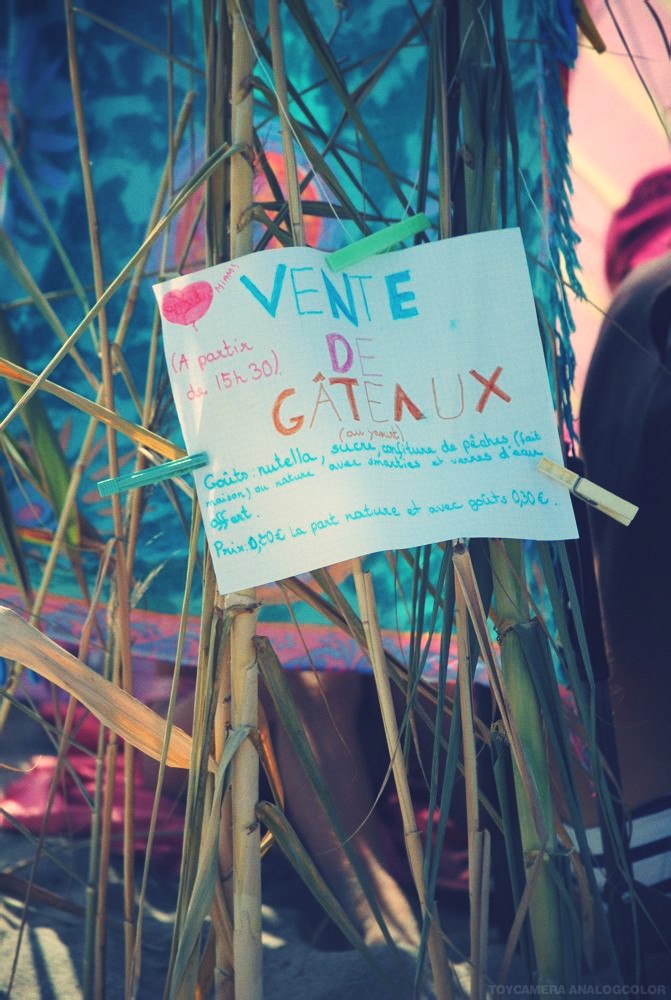 MIAM!
VENTE
(A partir
de 15h30)
DE
GÂTEAUX
(au yaourt)
Goûts : nutella, sucre, confiture de pêches (fait
maison) ou nature avec smarties et verres d'eau
offert.
Prix: 0,20€ La part nature et avec goûts 0,30€.
TOYCAMERA ANALOGCOLOR